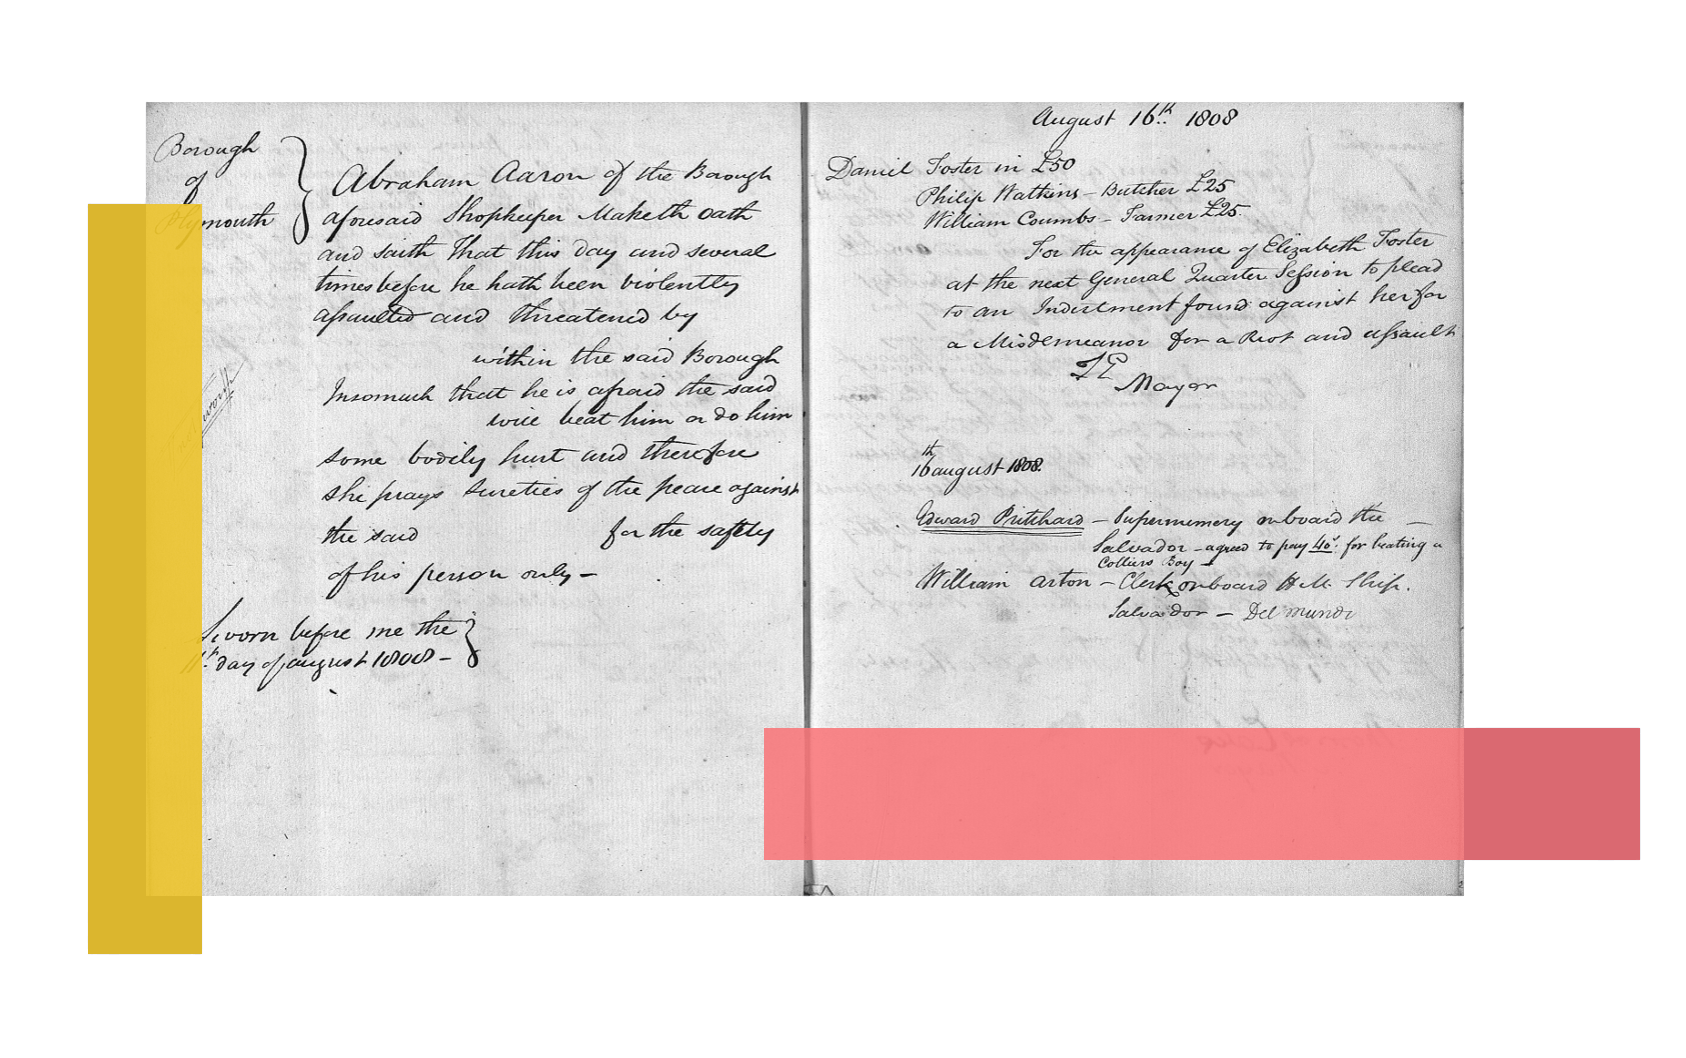 Borough
of
Plymouth
Abraham Aaron of the Borough
aforesaid Shopkeeper Maketh oath
and saith that this day and several
times before he hath been violently
assaulted and threatened by
within the said Borough
Insomuch that he is afraid the said
will beat him or do him
some bodily hurt and therefore
she prays Sureties of the peace against
the said for the safety
of his person only –
Sworn before me the
day of august 1808 –
August 16th 1808
Daniel Foster in £50
Philip Watkins – Butcher £25
William Coumbs – Farmer £25
For the appearance of Elizabeth Foster
at the next General Quarter Session to plead
to an Indictment found against her for
a Misdemeanor for a Riot and assault
Mayor
16th august 1808.
Edward Pritchard – Supernumery onboard the –
Salvador – agreed to pay 40s. for beating a
Colliers Boy –
William arton – Clerk onboard H.M. Ship.
Salvador – Del mundi